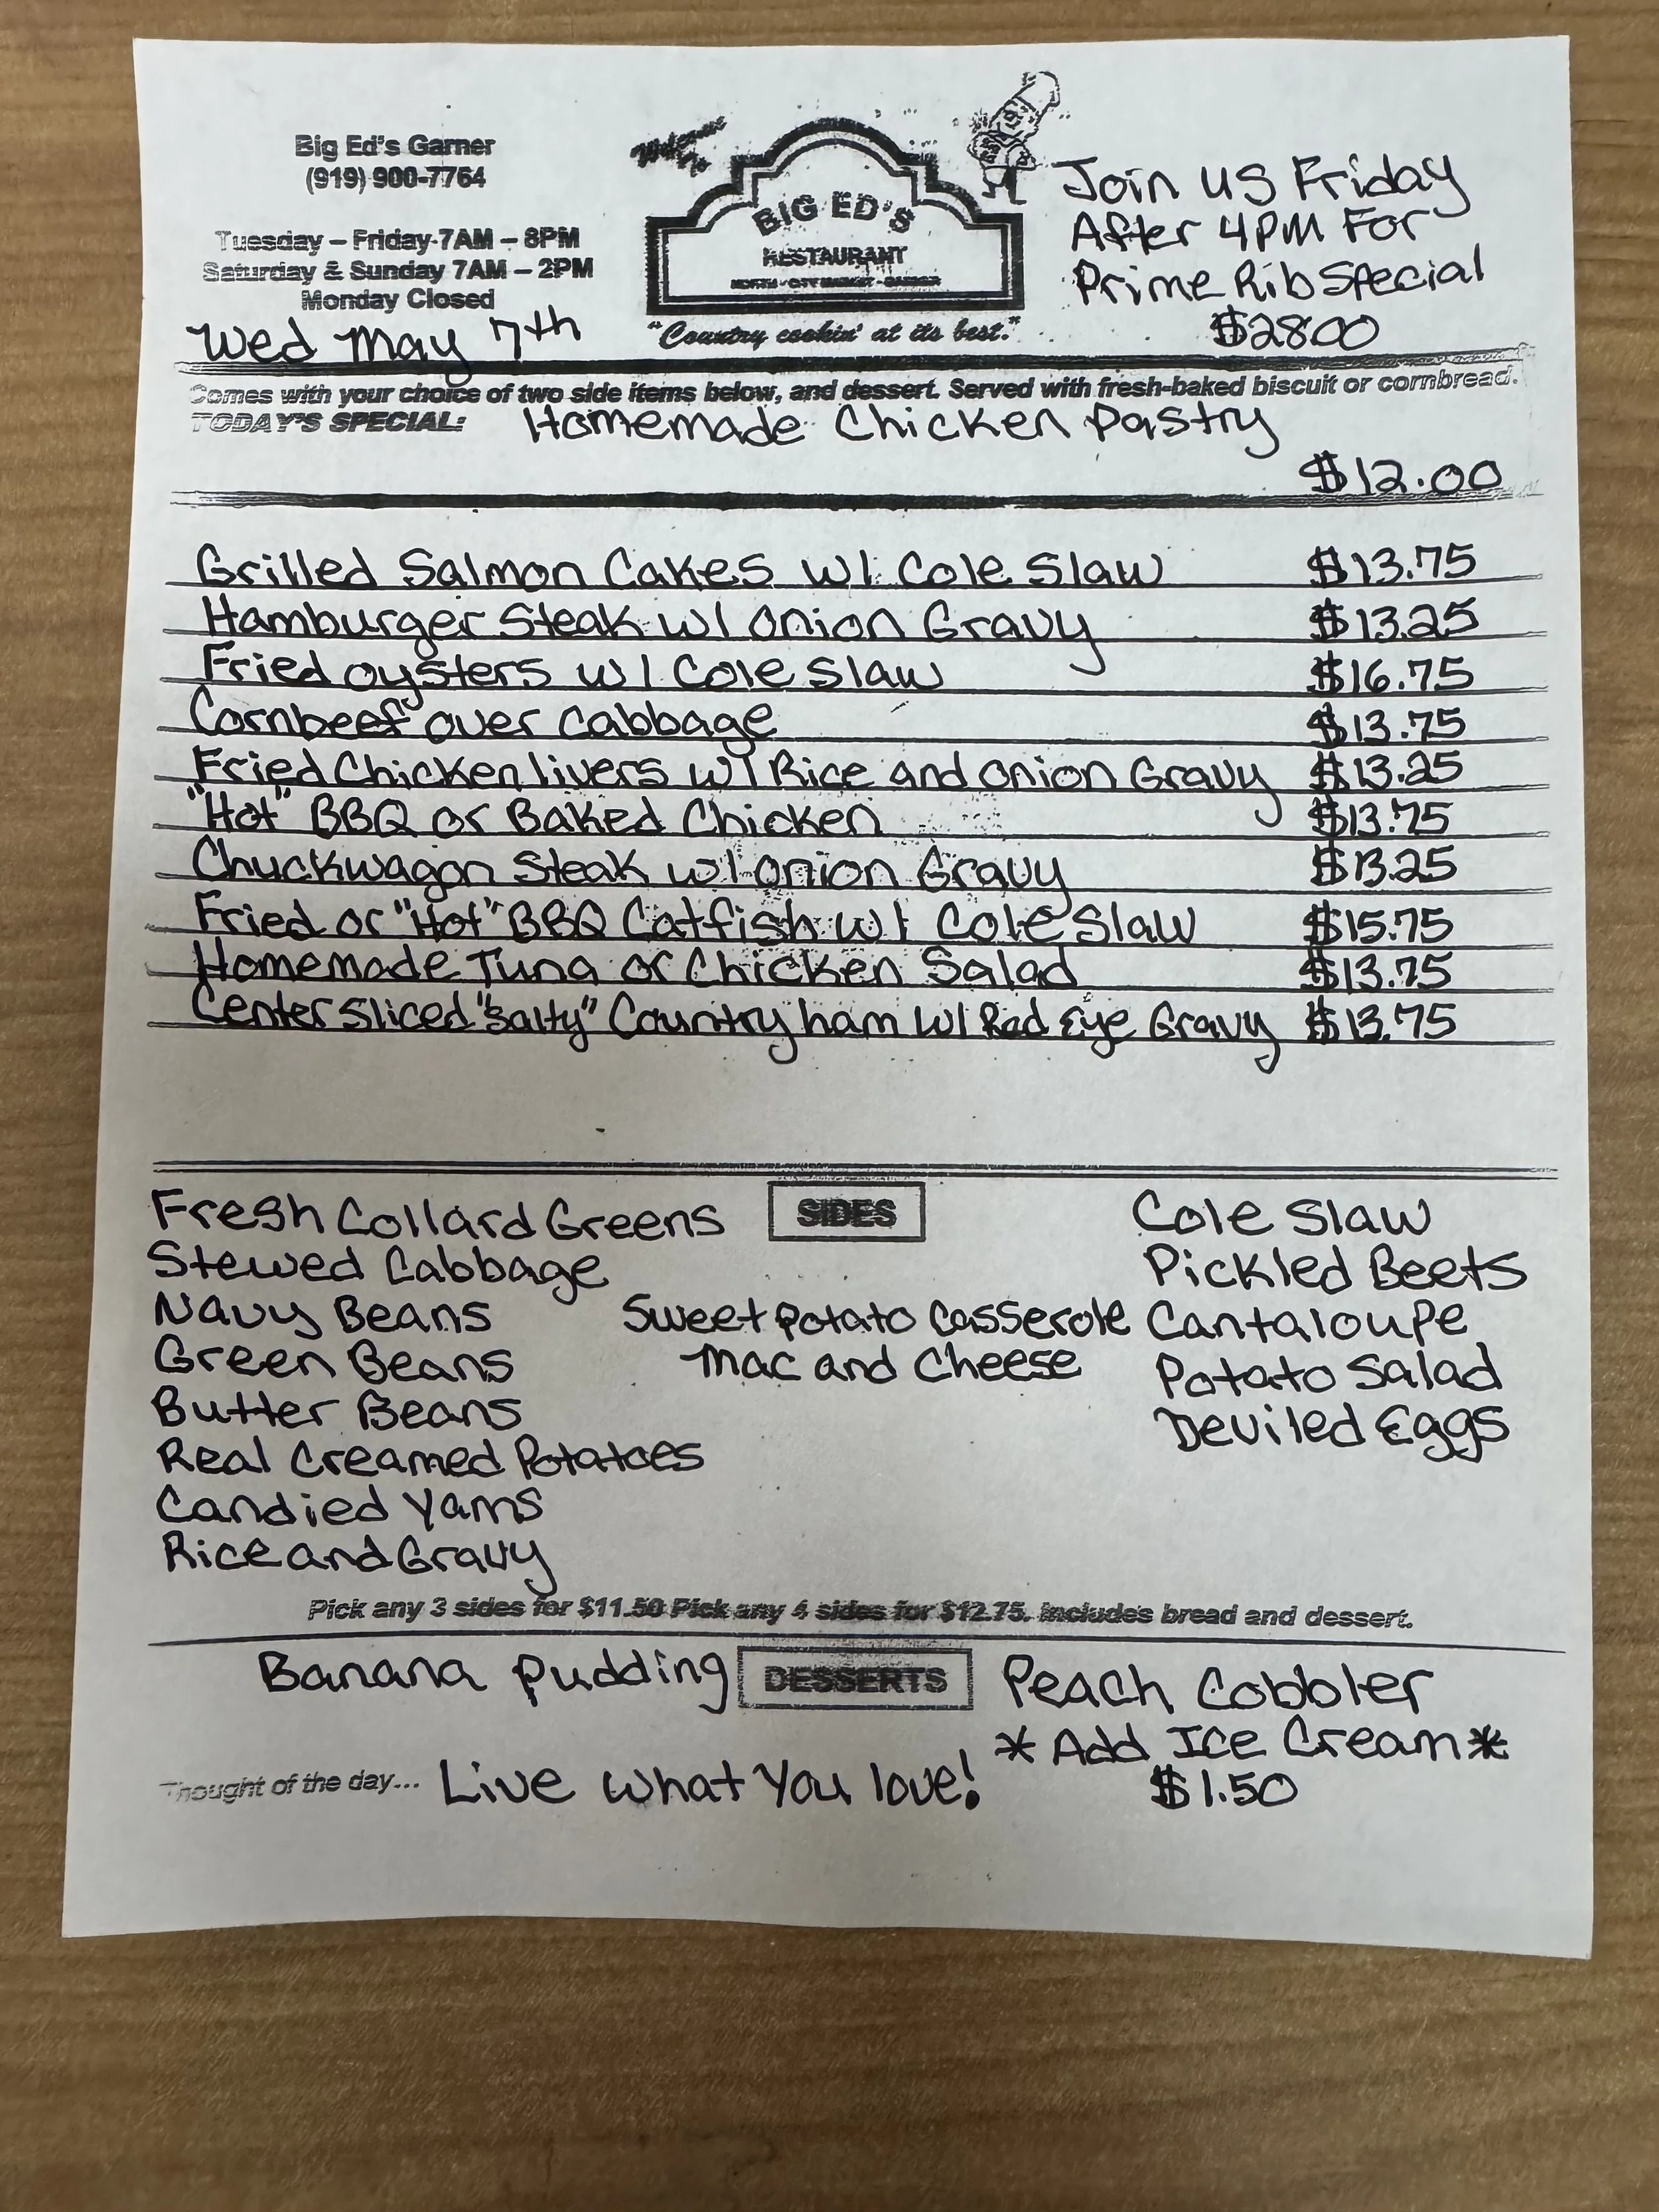 Big Ed's Garner
(919) 900-7764
Tuesday – Friday 7AM – 8PM
Saturday & Sunday 7AM – 2PM
Monday Closed
Wed May 7th
Welcome To
BIG ED'S
RESTAURANT
NORTH - CITY MARKET - GARNER
"Country cookin' at its best."
Join us Friday
After 4PM For
Prime Rib Special
$28.00
Comes with your choice of two side items below, and dessert. Served with fresh-baked biscuit or cornbread.
TODAY'S SPECIAL: Homemade Chicken Pastry
$12.00
Grilled Salmon Cakes w/ Cole Slaw $13.75
Hamburger Steak w/ Onion Gravy $13.25
Fried oysters w/ Cole Slaw $16.75
Cornbeef over Cabbage $13.75
Fried Chicken livers w/ Rice and Onion Gravy $13.25
"Hot" BBQ or Baked Chicken $13.75
Chuckwagon Steak w/ Onion Gravy $13.25
Fried or "Hot" BBQ Catfish w/ Cole Slaw $15.75
Homemade Tuna or Chicken Salad $13.75
Center Sliced "Salty" Country ham w/ Red Eye Gravy $13.75
SIDES
Fresh Collard Greens
Stewed Cabbage
Navy Beans
Green Beans
Butter Beans
Real Creamed Potatoes
Candied Yams
Rice and Gravy
Sweet Potato Casserole
Mac and Cheese
Cole Slaw
Pickled Beets
Cantaloupe
Potato Salad
Deviled Eggs
Pick any 3 sides for $11.50 Pick any 4 sides for $12.75. Includes bread and dessert.
Banana Pudding DESSERTS Peach Cobbler
*Add Ice Cream*
$1.50
Thought of the day... Live What You love!